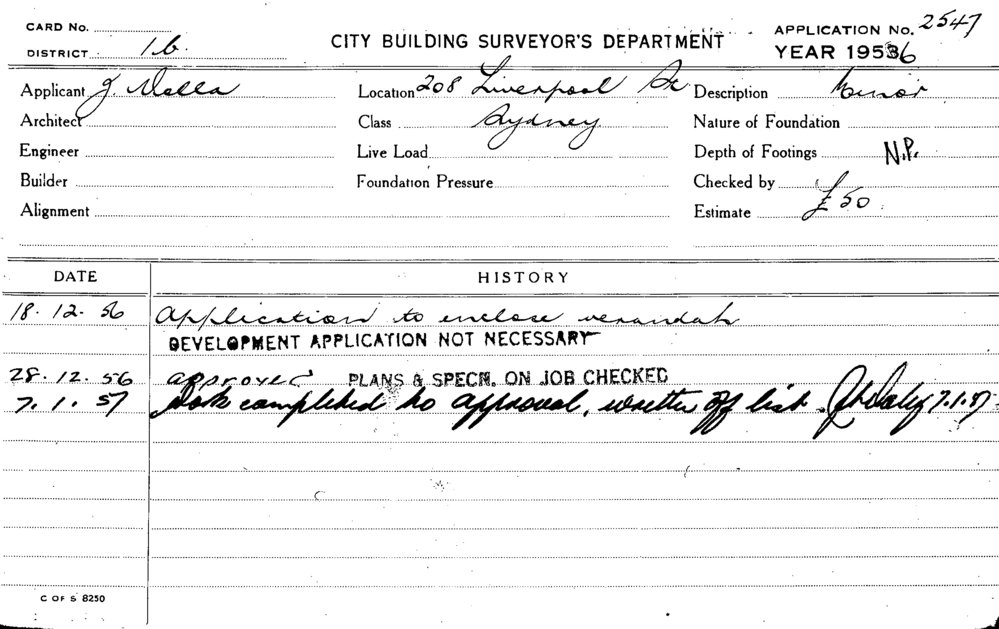 CARD No.
DISTRICT 1b.
CITY BUILDING SURVEYOR'S DEPARTMENT
APPLICATION No. 2547
YEAR 1956
Applicant J. Dalla Location 208 Liverpool St Description Minor
Architect Class Sydney Nature of Foundation
Engineer Live Load Depth of Footings N.P.
Builder Foundation Pressure Checked by
Alignment Estimate £50
DATE HISTORY
18.12.56 Application to enclose verandah
DEVELOPMENT APPLICATION NOT NECESSARY
28.12.56 approved PLANS & SPECN. ON JOB CHECKED
7.1.57 Job completed to approval, written off list. 7.1.57
C OF S 8250